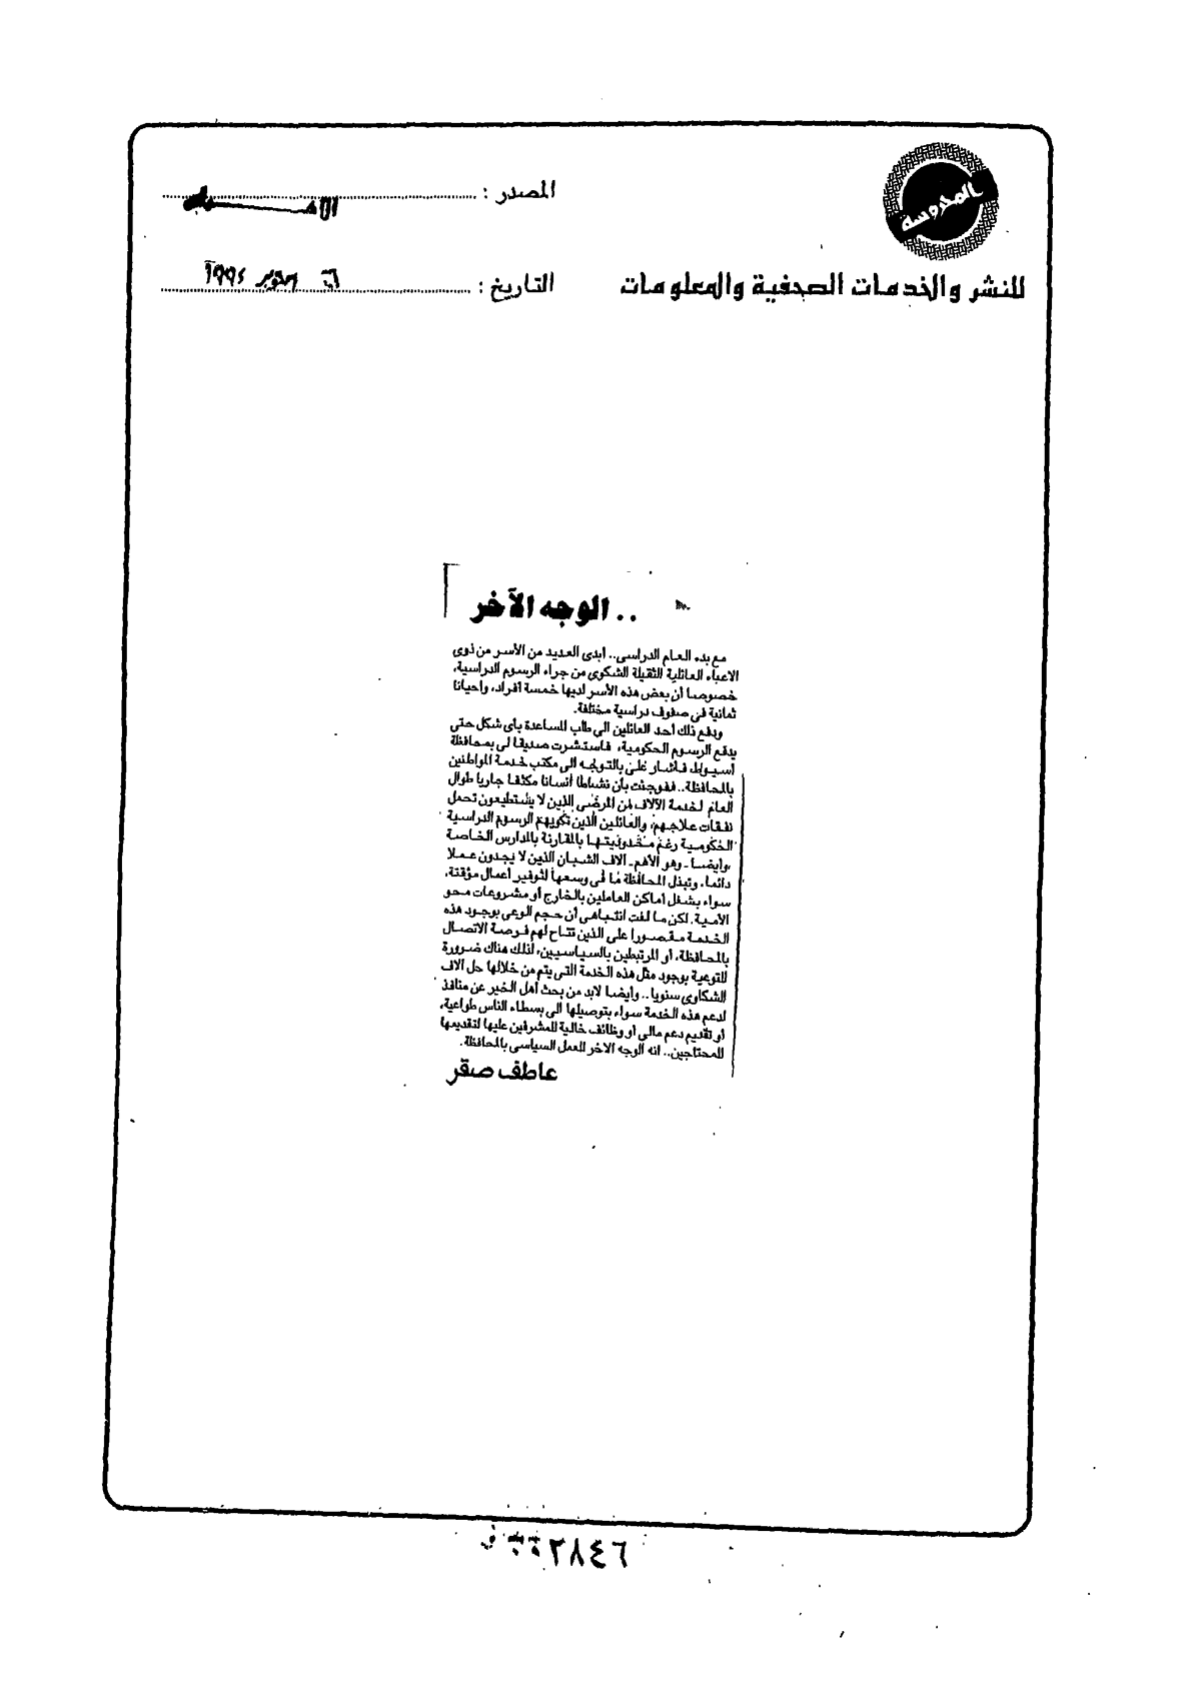 المحروسة
المصدر :
للنشر والخدمات الصحفية والمعلومات
التاريخ : ٦ اكتوبر ١٩٩٤
.. الوجه الآخر
مع بدء العام الدراسى.. أبدى العديد من الأسر من ذوى
الاعباء العائلية الثقيلة الشكوى من جراء الرسوم الدراسية،
خصوصا أن بعض هذه الأسر لديها خمسة أفراد، وأحيانا
ثمانية فى صفوف دراسية مختلفة.
ودفع ذلك أحد العائلين الى طلب المساعدة بأى شكل حتى
يدفع الرسوم الحكومية، فاستشرت صديقا لى بمحافظة
أسيوط، فأشار على بالتوجه الى مكتب خدمة المواطنين
بالمحافظة.. ففوجئت بأن نشاطا أنسانا مكثفا جاريا طوال
العام لخدمة الآلاف من المرضى الذين لا يستطيعون تحمل
نفقات علاجهم، والعائلين الذين تكويهم الرسوم الدراسية
الحكومية رغم محدوديتها بالمقارنة بالمدارس الخاصة
وأيضا ـ وهو الأهم ـ الاف الشبان الذين لا يجدون عملا
دائما، وتبذل المحافظة ما فى وسعها لتوفير أعمال مؤقتة،
سواء بشغل أماكن العاملين بالخارج أو مشروعات محو
الأمية. لكن ما لفت انتباهى أن حجم الوعى بوجود هذه
الخدمة مقصورا على الذين تتاح لهم فرصة الاتصال
بالمحافظة، أو المرتبطين بالسياسيين، لذلك هناك ضرورة
للتوعية بوجود مثل هذه الخدمة التى يتم من خلالها حل آلاف
الشكاوى سنويا.. وأيضا لابد من بحث أهل الخير عن منافذ
لدعم هذه الخدمة سواء بتوصيلها الى بسطاء الناس طواعية،
أو تقديم دعم مالى أو وظائف خالية للمشرفين عليها لتقديمها
للمحتاجين.. انه الوجه الاخر للعمل السياسى بالمحافظة.
عاطف صقر